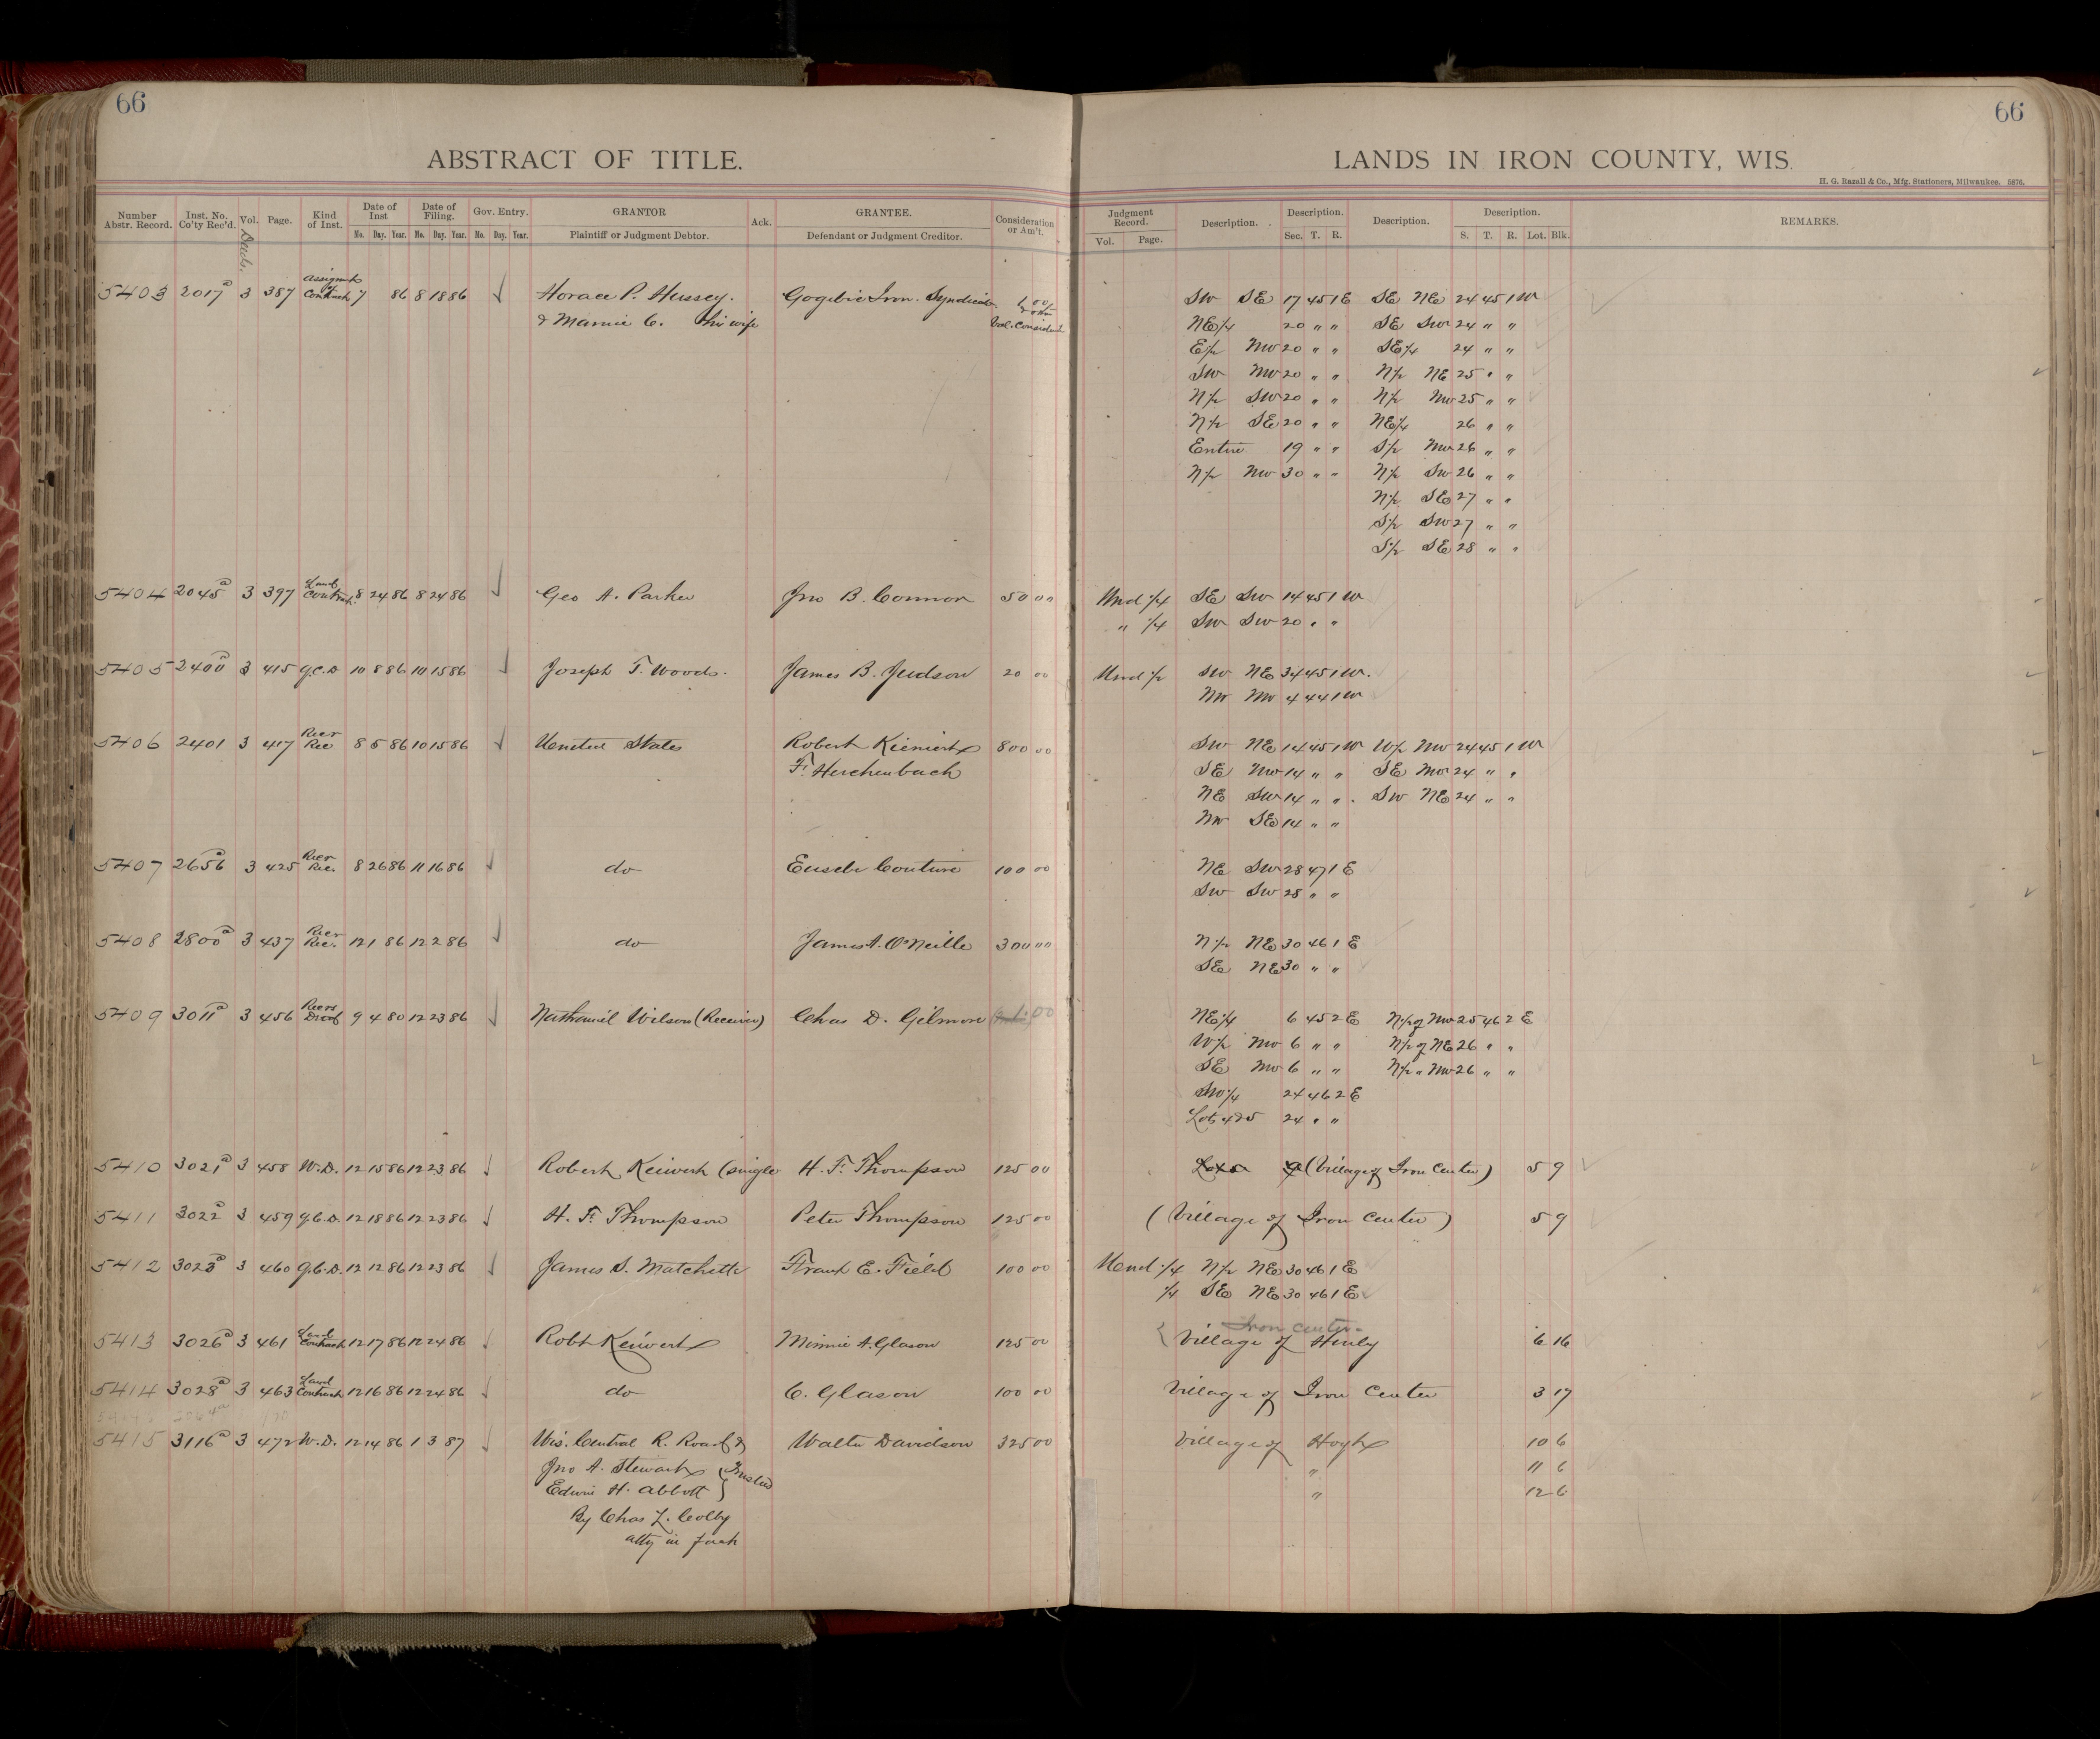 66
66
ABSTRACT OF TITLE.
LANDS IN IRON COUNTY, WIS.
H. G. Razall & Co., Mfg. Stationers, Milwaukee. 5876.
Number Abstr. Record. Inst. No. Co'ty Rec'd. Vol. Page. Kind of Inst. Date of Inst Mo. Day. Year. Date of Filing. Mo. Day. Year. Gov. Entry. Mo. Day. Year. GRANTOR Plaintiff or Judgment Debtor. Ack. GRANTEE. Defendant or Judgment Creditor. Consideration or Am't. Judgment Record. Vol. Page. Description. Description. Sec. T. R. Description. Description. S. T. R. Lot. Blk. REMARKS.
Deeds.
5403 2017a 3 387 Assignmt of Contract 7 86 8 18 86 Horace P. Hussey. Gogebic Iron. Syndicate 1.00 SW SE 17 45 1 E SE NE 24 45 1 W
& Mamie C. his wife & other Val. Considerat NE1/4 20 " " SE SW 24 " "
E1/2 NW 20 " " SE1/4 24 " "
SW NW 20 " " N1/2 NE 25 " "
N1/2 SW 20 " " N1/2 NW 25 " "
N1/2 SE 20 " " NE1/4 26 " "
Entire 19 " " S1/2 NW 26 " "
N1/2 NW 30 " " N1/2 SW 26 " "
N1/2 SE 27 " "
S1/2 SW 27 " "
S1/2 SE 28 " "
5404 2045a 3 397 Land Contract 8 24 86 8 24 86 Geo A. Parker Jno B. Connor 50 00 Und 1/4 SE SW 14 45 1 W
" 1/4 SW SW 20 " "
5405 2400a 3 415 Q.C.D 10 8 86 10 15 86 Joseph T. Woods. James B. Judson 20 00 Und 1/2 SW NE 34 45 1 W.
NW NW 4 44 1 W
5406 2401 3 417 Rcer Rec 8 5 86 10 15 86 United States Robert Kieniert 800 00 SW NE 14 45 1 W W1/2 NW 24 45 1 W
F. Herchenbach SE NW 14 " " SE NW 24 " "
NE SW 14 " " SW NE 24 " "
NW SE 14 " "
5407 2656a 3 425 Rcer Rec. 8 26 86 11 16 86 do Euseb Couture 100 00 NE SW 28 47 1 E
SW SW 28 " "
5408 2800a 3 437 Rcer Rec. 12 1 86 12 2 86 do James A. O'Neille 300 00 N1/2 NE 30 46 1 E
SE NE 30 " "
5409 3011a 3 456 Rcers Deed 9 4 80 12 23 86 Nathaniel Wilson (Receiver) Chas D. Gilmore 1.00 NE1/4 6 45 2 E N1/2 of NW 25 46 2 E
W1/2 NW 6 " " N1/2 of NE 26 " "
SE NW 6 " " N1/2 " NW 26 " "
SW1/4 24 46 2 E
Lots 4&5 24 " "
5410 3021a 3 458 W.D. 12 15 86 12 23 86 Robert Keiwert (single H. F. Thompson 125 00 (Village of Iron Center) 5 9
5411 3022a 3 459 Q.C.D. 12 18 86 12 23 86 H. F. Thompson Peter Thompson 125 00 (Village of Iron Center) 5 9
5412 3023a 3 460 Q.C.D. 12 12 86 12 23 86 James S. Matchette Frank E. Field 100 00 Und 1/4 N1/2 NE 30 46 1 E
1/4 SE NE 30 46 1 E
Iron Center.
5413 3026a 3 461 Land Contract 12 17 86 12 24 86 Robt Keiwert Minnie A. Glason 125 00 Village of Hurly 6 16
5414 3028a 3 463 Land Contract 12 16 86 12 24 86 do C. Glason 100 00 Village of Iron Center 3 17
5415 3116a 3 472 W.D. 12 14 86 1 3 87 Wis. Central R. Road & Walter Davidson 325 00 Village of Hoyt 10 6
Jno A. Stewart } Trustees " 11 6
Edwin H. Abbott } " 12 6
By Chas L. Colby
atty in fact